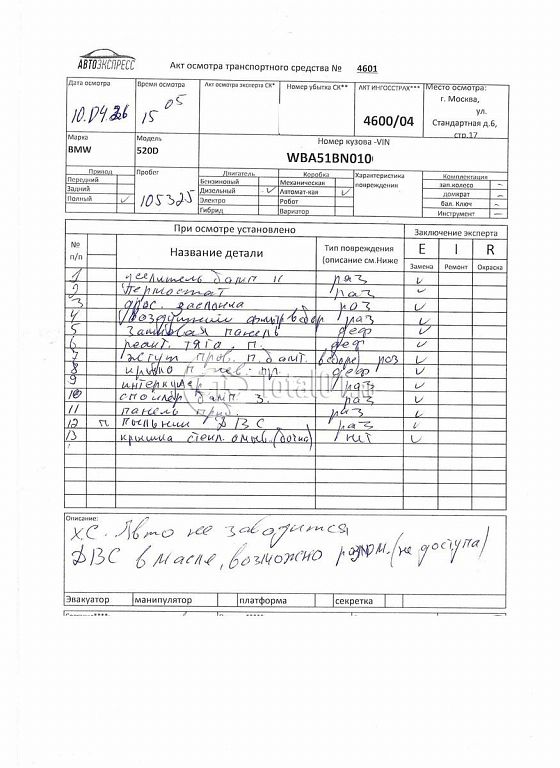 АВТОЭКСПРЕСС
Акт осмотра транспортного средства № 4601
Дата осмотра
Время осмотра
Акт осмотра эксперта СК*
Номер убытка СК**
АКТ ИНГОССТРАХ***
Место осмотра:
г. Москва,
ул.
Стандартная д.6,
стр.17
10.04.26
15 05
4600/04
Марка
BMW
Модель
520D
Номер кузова -VIN
WBA51BN010
Привод
Передний
Задний
Полный ✓
Пробег
105325
Двигатель
Бензиновый
Дизельный ✓
Электро
Гибрид
Коробка
Механическая
Автомат-кая ✓
Робот
Вариатор
Характеристика повреждения
Комплектация
зап.колесо –
домкрат –
бал. Ключ –
Инструмент –
При осмотре установлено
Заключение эксперта
№ п/п
Название детали
Тип повреждения (описание см.Ниже
E I R
Замена Ремонт Окраска
1 усилитель бамп п раз ✓
2 термостат раз ✓
3 дрос. заслонка раз ✓
4 воздушный фильтр в сбор раз ✓
5 замковая панель деф ✓
6 реакт. тяга п. деф ✓
7 жгут пров. п. бамп. в сборе раз ✓
8 крыло п. лев. деф ✓
9 интеркулер раз ✓
10 спойлер бамп з. раз ✓
11 панель приб. раз ✓
12 п пыльник ДВС раз ✓
13 крышка стекл. омыв. (бочка) нет ✓
Total01.ru
Описание:
Х.С. Авто не заводится
ДВС в масле, возможно разлом. (не доступа)
Эвакуатор манипулятор платформа секретка